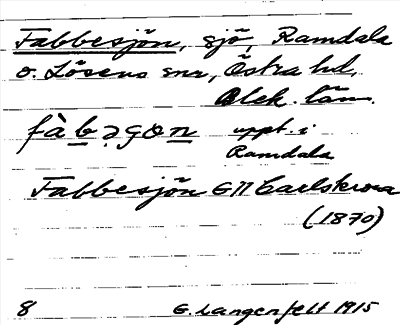 Fabbesjön, sjö, Ramdala
o. Lösens snr, Östra hd,
Blek. län.
fàbəʂon uppt. i
Ramdala
Fabbesjön GK Carlskrona
(1870)
8 G. Langenfelt 1915